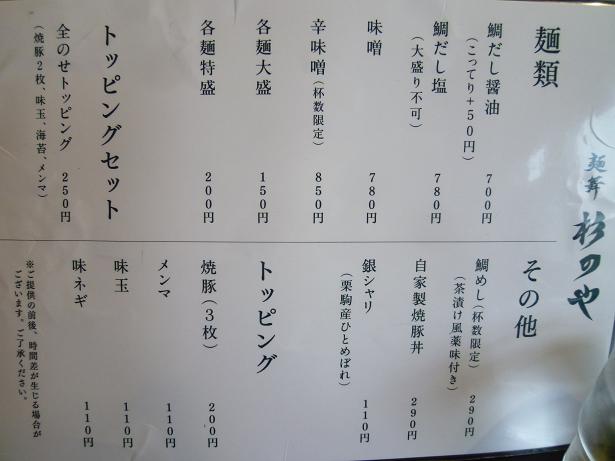 麺舞 杉のや
麺類
鯛だし醤油 700円
(こってり+50円)
鯛だし塩 780円
(大盛り不可)
味噌 780円
辛味噌(杯数限定) 850円
各麺大盛 150円
各麺特盛 200円
トッピングセット
全のせトッピング 250円
(焼豚2枚、味玉、海苔、メンマ)
その他
鯛めし(杯数限定) 290円
(茶漬け風薬味付き)
自家製焼豚丼 290円
銀シャリ 110円
(栗駒産ひとめぼれ)
トッピング
焼豚(3枚) 200円
メンマ 110円
味玉 110円
味ネギ 110円
※ご提供の前後、時間差が生じる場合が
ございます。ご了承ください。